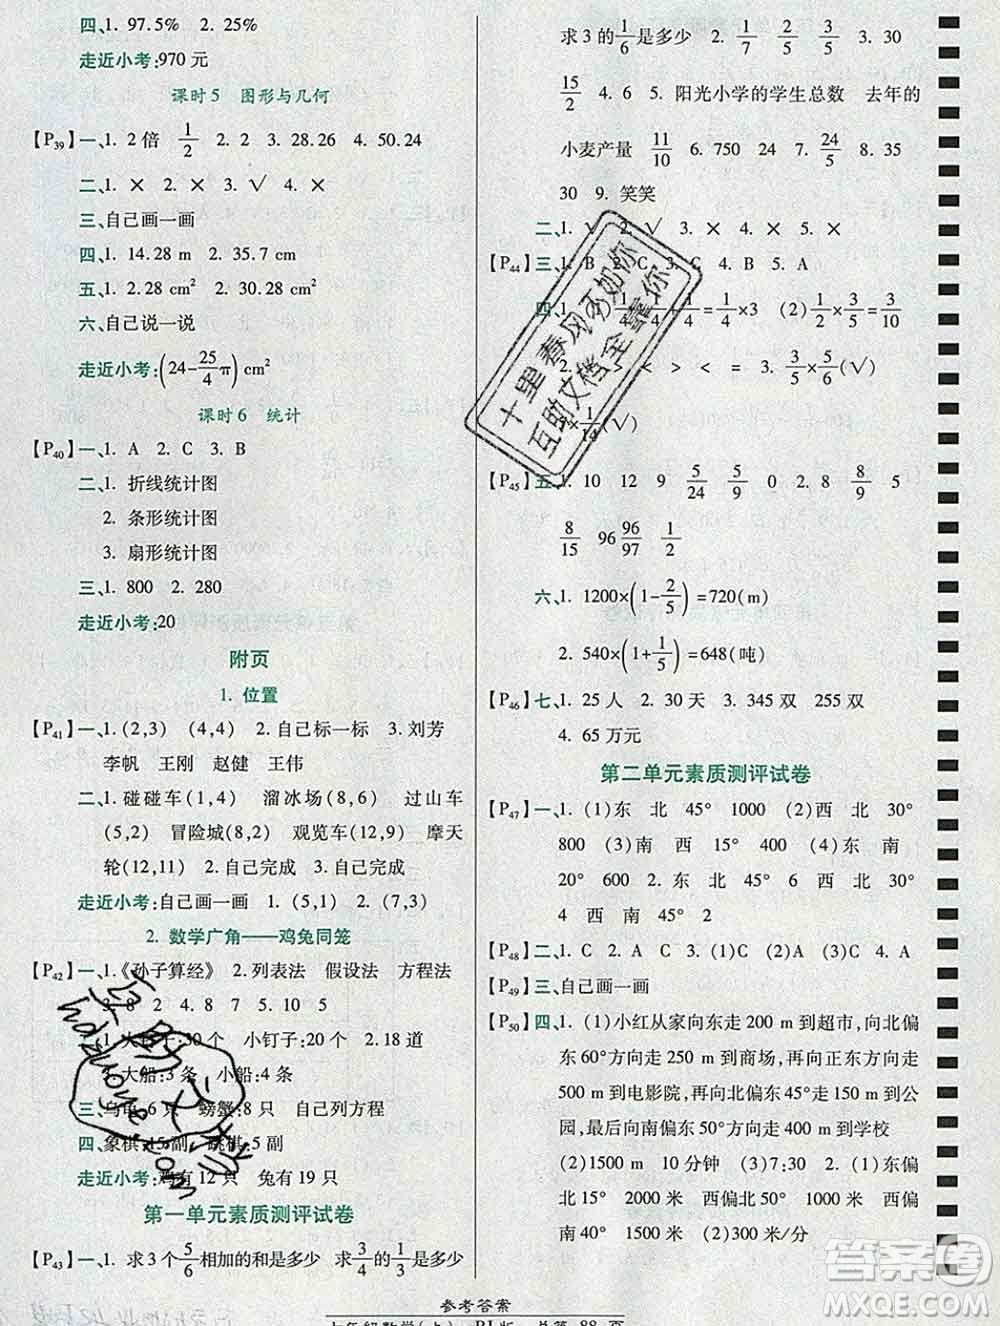 四、1. 97.5%　2. 25%
走近小考:970 元
课时 5　图形与几何
【P₃₉】一、1. 2 倍　1/2　2. 2　3. 28.26　4. 50.24
二、1. ×　2. ×　3. √　4. ×
三、自己画一画
四、1. 14.28 m　2. 5 cm
五、1. 2.28 cm²　2. 30.28 cm²
六、自己说一说
走近小考:(24-25/4π) cm²
课时 6　统计
【P₄₀】一、1. A　2. C　3. B
二、1. 折线统计图
2. 条形统计图
3. 扇形统计图
三、1. 800　2. 280
走近小考:20
附页
1. 位置
【P₄₁】一、1. (2,3)　(4,4)　2. 自己标一标　3. 刘芳
李帆　王刚　赵健　王伟
二、1. 碰碰车(1,4)　溜冰场(8,6)　过山车
(5,2)　冒险城(8,2)　观览车(12,9)　摩天
轮(12,11)　2. 自己完成　3. 自己完成
走近小考:自己画一画　1. (5,1)　2. (7,3)
2. 数学广角——鸡兔同笼
【P₄₂】一、1.《孙子算经》　2. 列表法　假设法　方程法
3. 8　2　4. 8　7　5. 10　5
二、1. 大钉子:30 个　小钉子:10 个　2. 18 道
3. 大船:3 条　小船:4 条
三、乌龟:6 只　螃蟹:8 只　自己列方程
四、象棋:15 副　跳棋:5 副
走近小考:鸡有 12 只　兔有 19 只
第一单元素质测评试卷
【P₄₃】一、1. 求 3 个5/6相加的和是多少　求4/5的1/3是多少
求 3 的1/6是多少　2. 1/7　5/8　5/8　3. 30
15/2　4. 6　5. 阳光小学的学生总数　去年的
小麦产量　11/10　6. 750　24　7. 24/5　8. 35
30　9. 笑笑
二、1. √　2. √　3. ×　4. ×　5. ×
【P₄₄】三、1. B　2. C　3. C　4. B　5. A
四、=1/4×3　(2)1/2×3/5=3/10
<　>　<　<　=　3. 3/5×1/2(√)
(√)
【P₄₅】五、1. 10　12　9　5/24　5/9　0　2. 8　8/9　5
8/15　96 96/97　1/2
六、1. 1200×(1-2/5)=720(m)
2. 540×(1+1/5)=648(吨)
【P₄₆】七、1. 25 人　2. 30 天　3. 345 双　255 双
4. 65 万元
第二单元素质测评试卷
【P₄₇】一、1. (1)东　北　45°　1000　(2)西　北　30°
800　(3)南　西　15°　400　(4)东　南
20°　600　2. 东　北　45°　4　西　北　45°
4　西　南　45°　2
【P₄₈】二、1. C　2. A　3. (1)D　(2)B　(3)C　4. A
【P₄₉】三、自己画一画
【P₅₀】四、1. (1)小红从家向东走 200 m 到超市,向北偏
东 60°方向走 250 m 到商场,再向正东方向走
500 m 到电影院,再向北偏东 45°走 150 m 到公
园,最后向南偏东 50°方向走 450 m 到学校
(2)1500 m　10 分钟　(3)略　2. (1)东偏
北 15°　2000 米　西偏北 75°　1000 米　西偏
南 40°　1500 米　(2)300 米/分
参考答案
十里春风不如你
互助文档全靠你
答案圈